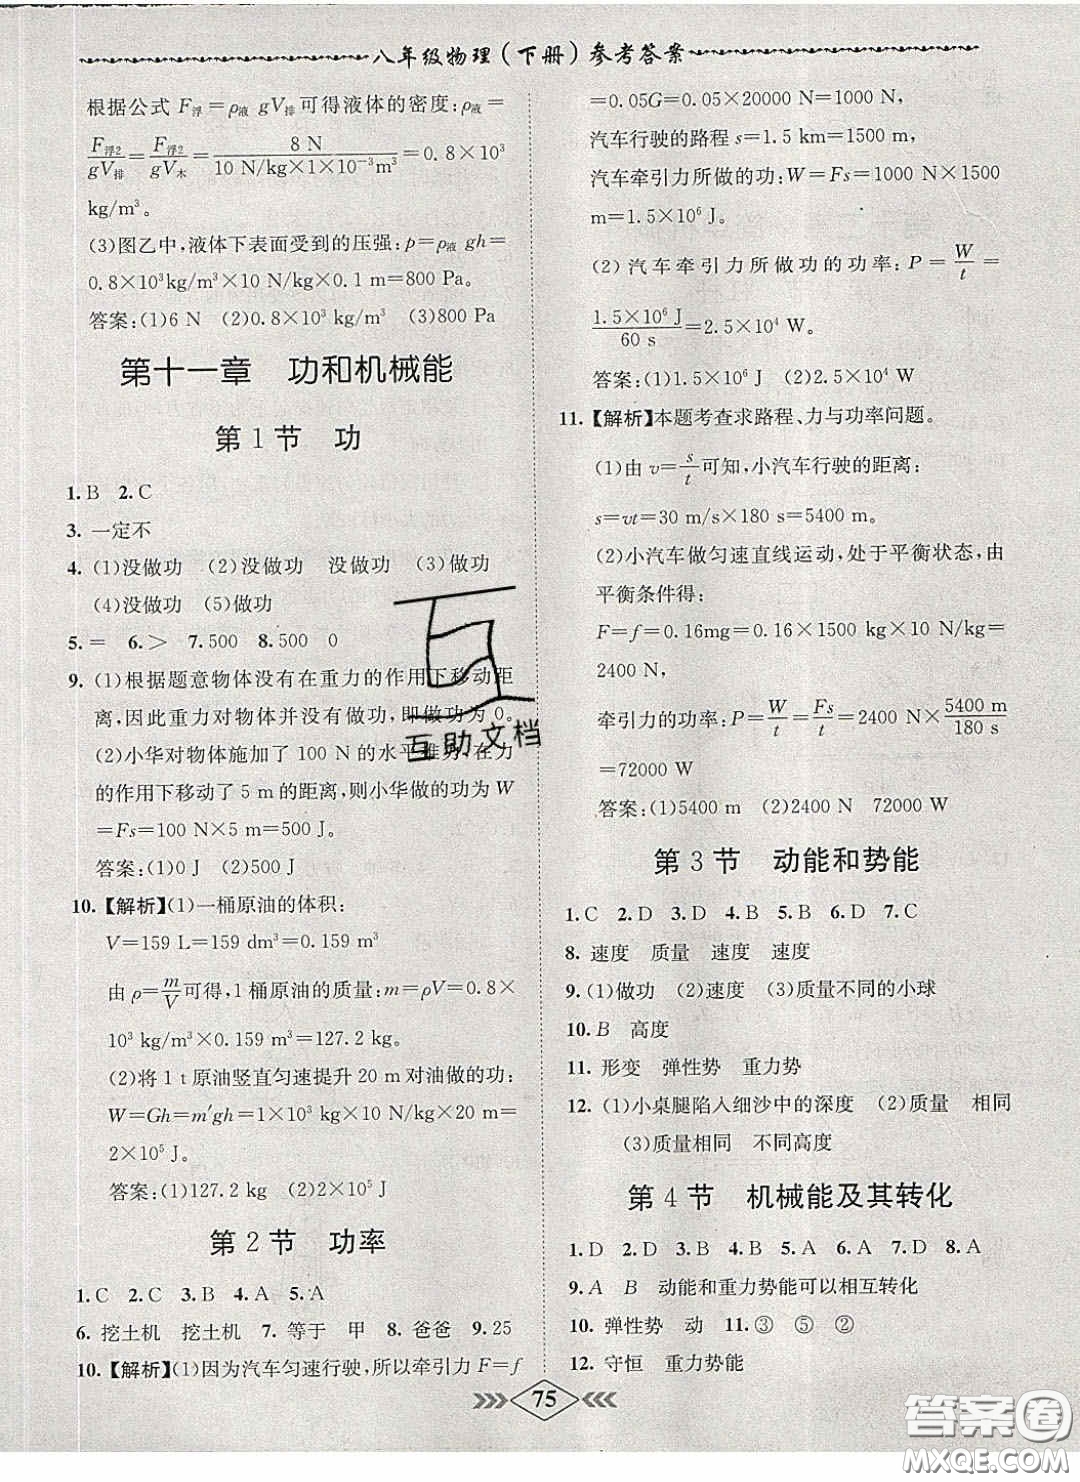 八年级物理(下册)参考答案
根据公式 F浮=ρ液 gV排可得液体的密度:ρ液=
F浮2/gV排=F浮2/gV木=8 N/(10 N/kg×1×10⁻³m³)=0.8×10³
kg/m³。
(3)图乙中,液体下表面受到的压强:p=ρ液 gh=
0.8×10³kg/m³×10 N/kg×0.1 m=800 Pa。
答案:(1)6 N (2)0.8×10³ kg/m³ (3)800 Pa
第十一章 功和机械能
第1节 功
1.B 2.C
3. 一定不
4. (1)没做功 (2)没做功 没做功 (3)做功
(4)没做功 (5)做功
5.= 6.> 7.500 8.500 0
9. (1)根据题意物体没有在重力的作用下移动距
离,因此重力对物体并没有做功,即做功为0。
(2)小华对物体施加了 100 N的水平推力,在力
的作用下移动了5 m的距离,则小华做的功为W
=Fs=100 N×5 m=500 J。
答案:(1)0 J (2)500 J
10.【解析】(1)一桶原油的体积:
V=159 L=159 dm³=0.159 m³
由 ρ=m/V可得,1桶原油的质量:m=ρV=0.8×
10³ kg/m³×0.159 m³=127.2 kg。
(2)将 1 t原油竖直匀速提升 20 m对油做的功:
W=Gh=m′gh=1×10³ kg×10 N/kg×20 m=
2×10⁵ J。
答案:(1)127.2 kg (2)2×10⁵ J
第2节 功率
1.C 2.C 3.B 4.A 5.A
6. 挖土机 挖土机 7. 等于 甲 8. 爸爸 9.25
10.【解析】(1)因为汽车匀速行驶,所以牵引力 F=f
=0.05G=0.05×20000 N=1000 N,
汽车行驶的路程 s=1.5 km=1500 m,
汽车牵引力所做的功:W=Fs=1000 N×1500
m=1.5×10⁶ J。
(2)汽车牵引力所做功的功率:P=W/t=
1.5×10⁶ J/60 s=2.5×10⁴ W。
答案:(1)1.5×10⁶ J (2)2.5×10⁴ W
11.【解析】本题考查求路程、力与功率问题。
(1)由 v=s/t可知,小汽车行驶的距离:
s=vt=30 m/s×180 s=5400 m。
(2)小汽车做匀速直线运动,处于平衡状态,由
平衡条件得:
F=f=0.16mg=0.16×1500 kg×10 N/kg=
2400 N,
牵引力的功率:P=W/t=Fs/t=2400 N×5400 m/180 s
=72000 W
答案:(1)5400 m (2)2400 N 72000 W
第3节 动能和势能
1.C 2.D 3.D 4.B 5.B 6.D 7.C
8. 速度 质量 速度 速度
9. (1)做功 (2)速度 (3)质量不同的小球
10.B 高度
11. 形变 弹性势 重力势
12. (1)小桌腿陷入细沙中的深度 (2)质量 相同
(3)质量相同 不同高度
第4节 机械能及其转化
1.D 2.D 3.B 4.D 5.A 6.A 7.D 8.A
9.A B 动能和重力势能可以相互转化
10. 弹性势 动 11.③ ⑤ ②
12. 守恒 重力势能
75
互助文档
答案圈
MXQE.COM